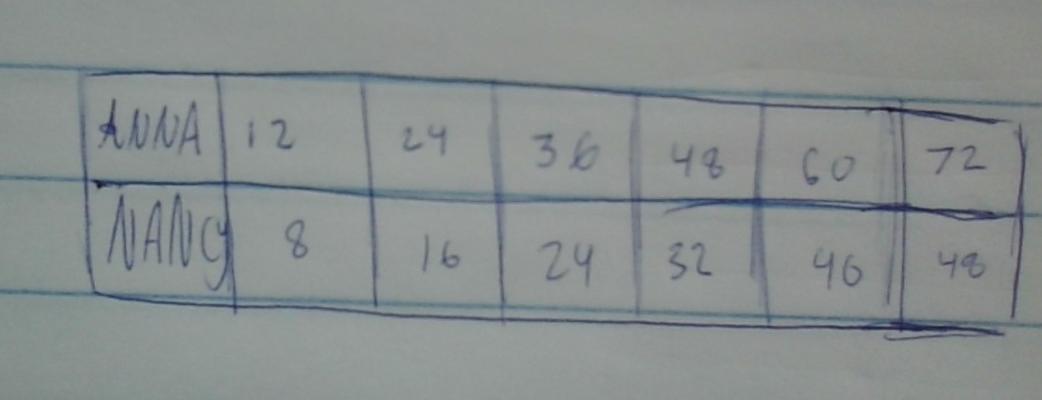 ANNA 12 24 36 48 60 72
NANCY 8 16 24 32 40 48